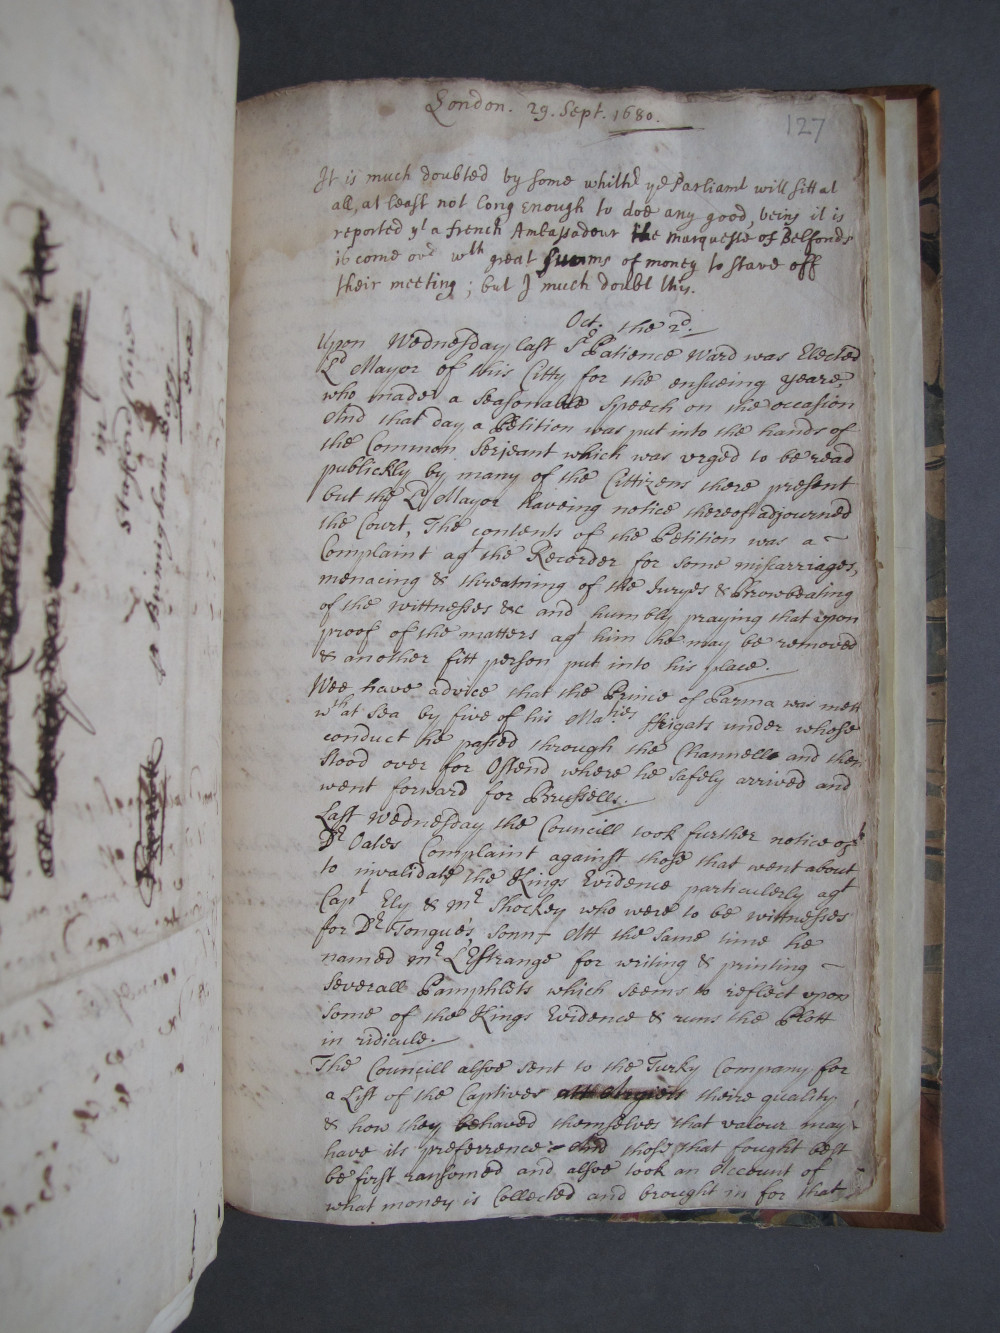 London. 29. Sept. 1680.
127
It is much doubted by some whithr ye Parliamt will sitt at
all, at least not long enough to doe any good, being it is
reported yt a french Ambassadour the Marquesse of Belfonds
is come over wth great summs of money to stave off
their meeting; but I much doubt this.
Oct. the 2d.
Upon Wednesday last Sr Patience Ward was Elected
Ld Mayor of this Citty for the ensueing yeare,
who made a seasonable speech on the occasion
And that day a Petition was put into the hands of
the Common Serjeant which was urged to be read
publickly by many of the Cittizens there present
but the Ld Mayor haveing notice thereof adjourned
the Court, The contents of the Petition was a ~
Complaint agt the Recorder for some miscarriages,
menacing & threatning of the Juryes & Browbeating
of the wittnesses &c and humbly praying that upon
proof of the matters agt him he may be removed
& another fitt person put into his place.
Wee have advice that the Prince of Parma was mett
wth at Sea by five of his Maties ffrigats under whose
conduct he passed through the Channell and then
stood over for Ostend where he safely arrived and
went forward for Brussells.
Last Wednesday the Councill took further notice of
Dr Oates Complaint against those that went about
to invalidate the Kings Evidence particulerly agt
Capt Ely & Mr Shockey who were to be wittnesses
for Dr Tongue's Sonn. Att the same time he
named Mr L'Estrange for writing & printing ~
severall Pamphlets which seems to reflect upon
some of the Kings Evidence & runs the Plott
in ridicule.
The Councill alsoe sent to the Turky Company for
a List of the Captives theire quality
& how they behaved themselves that valour may
have its preferrence And those that fought best
be first ransomed and alsoe took an Account of
what money is Collected and brought in for that
in
Staffordshire